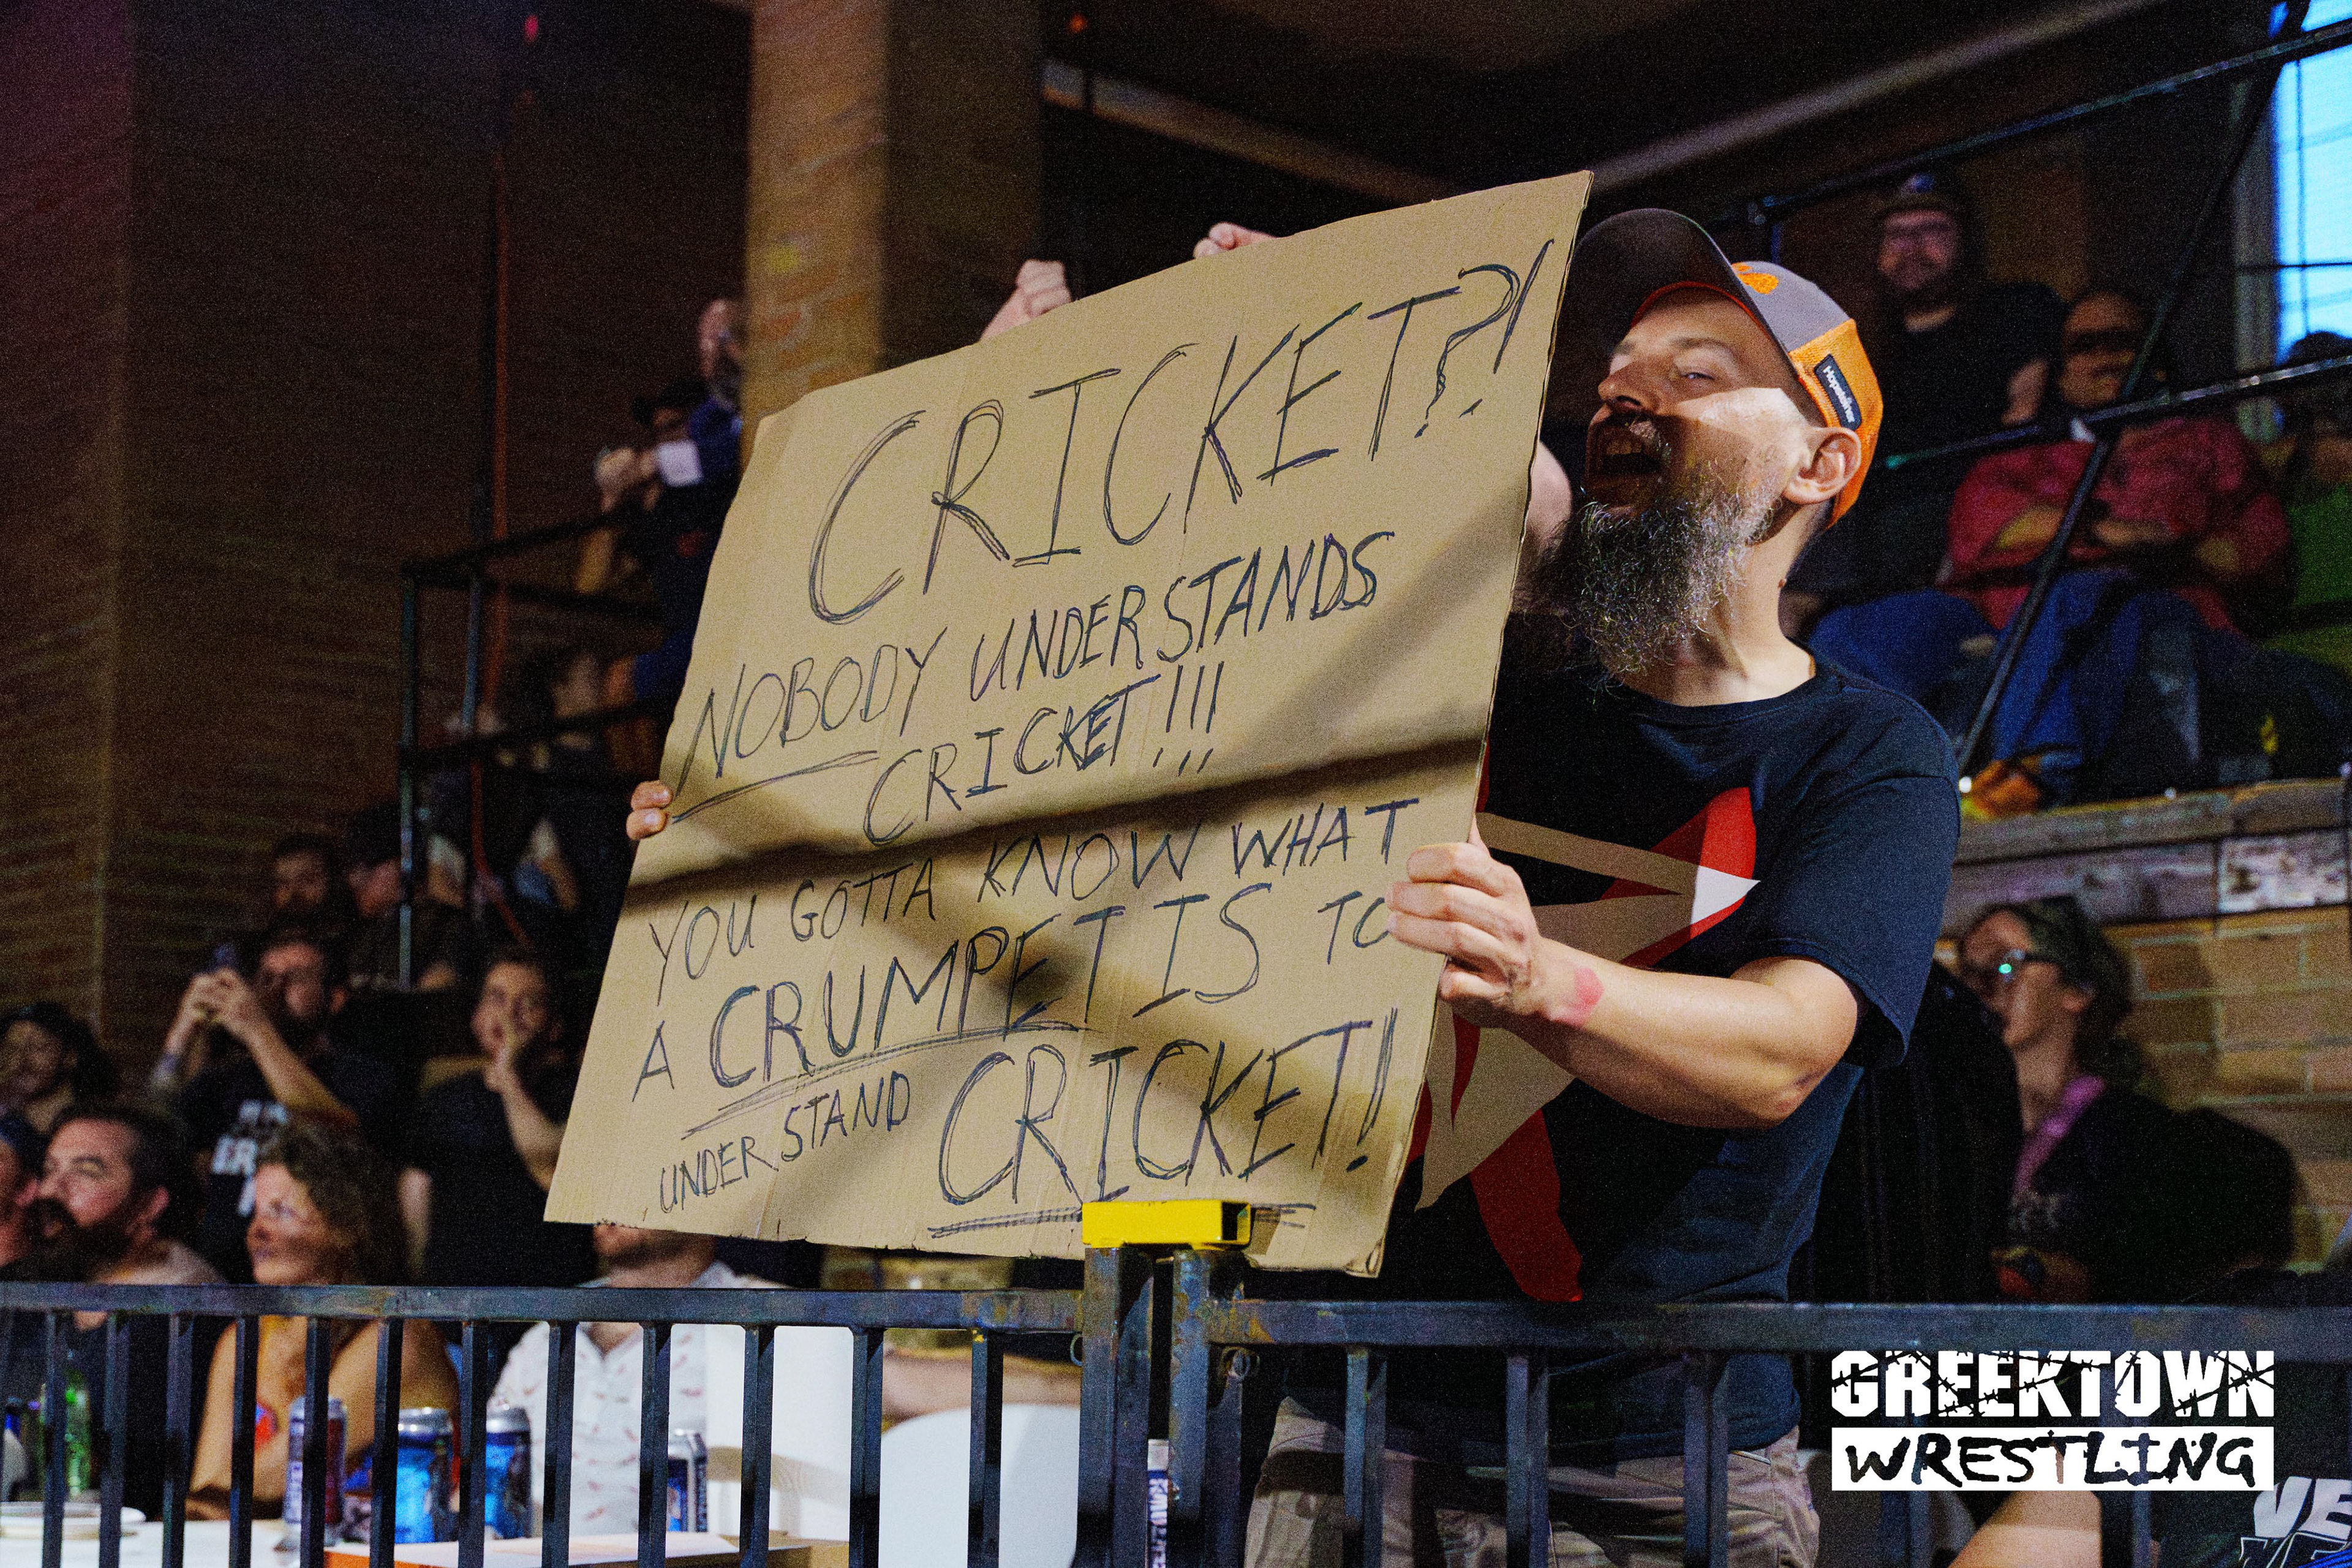 CRICKET?!
NOBODY UNDERSTANDS
CRICKET!!!
YOU GOTTA KNOW WHAT
A CRUMPET IS TO
UNDERSTAND CRICKET!
GREEKTOWN
WRESTLING